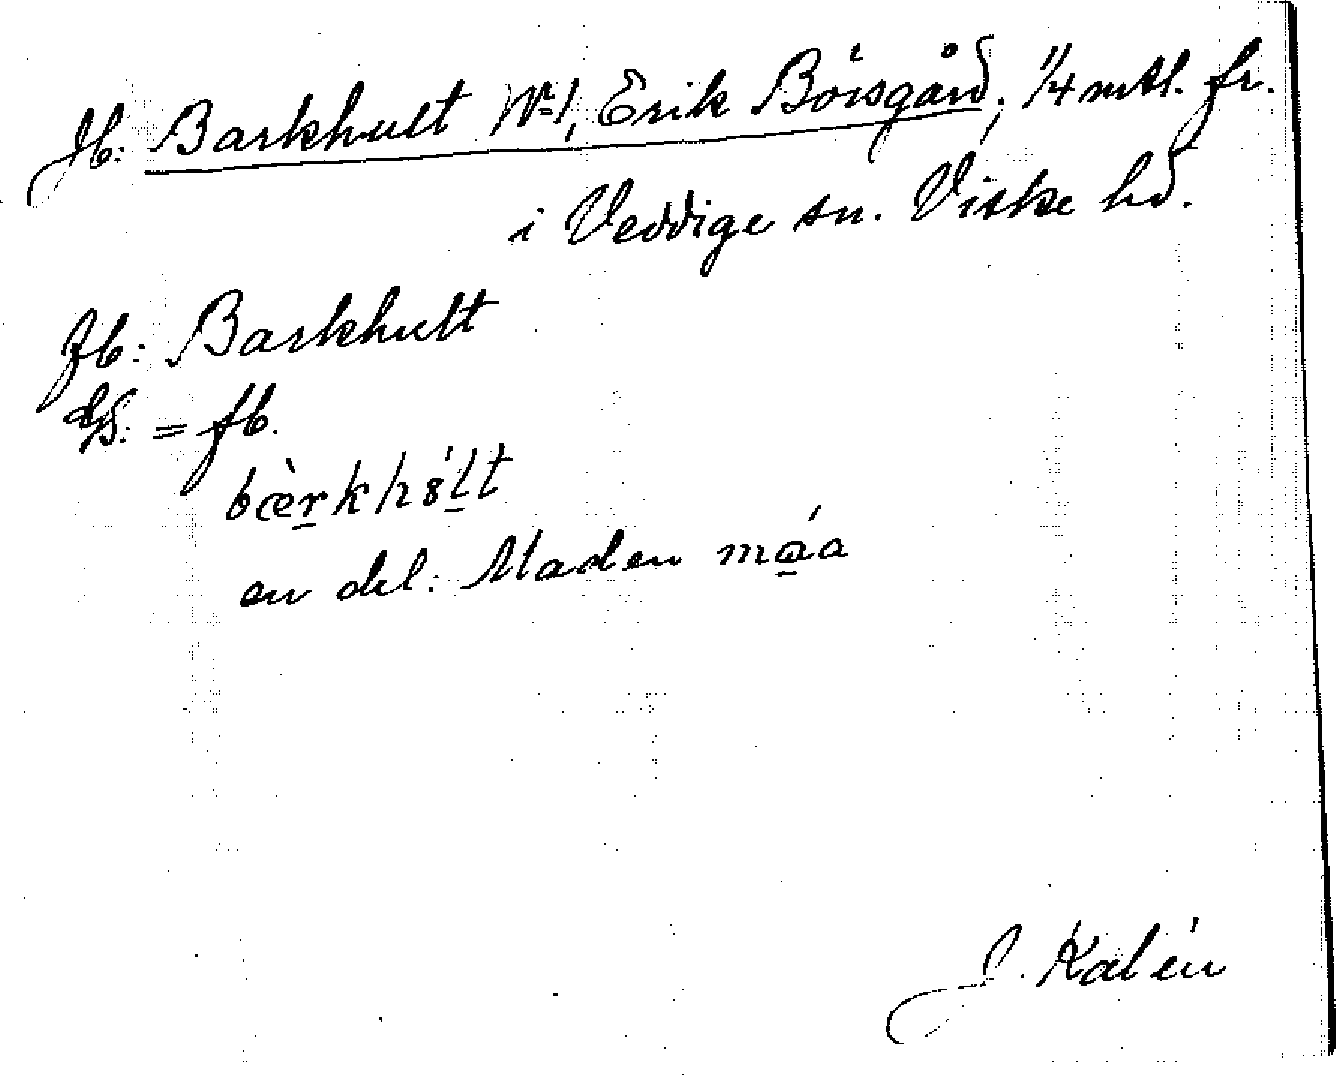 Jb: Barkhult No 1, Erik Börsgård, 1/4 mtl. fr.
i Veddige sn. Viske hd.
Fb: Barkhult
GS: = fb.
bæ̀r̲kh8́l̲t
en del: Maden má̲a
J. Kalén